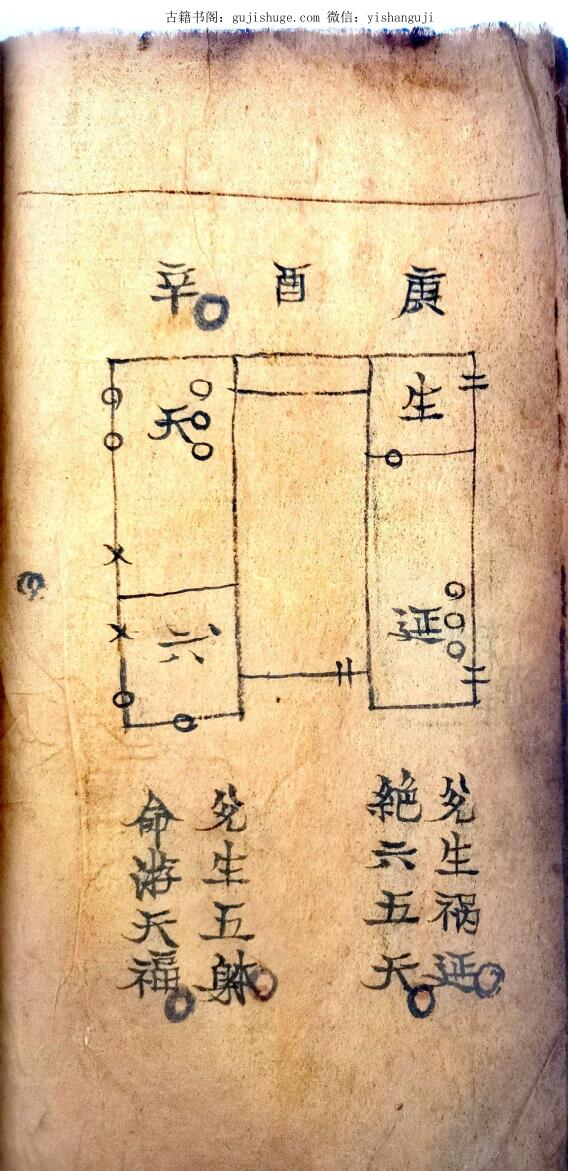 古籍书阁: gujishuge.com 微信: yishanguji
庚 酉 辛
生
延
天
六
兊生祸延
絶六五天
兊生五躰
命游天福